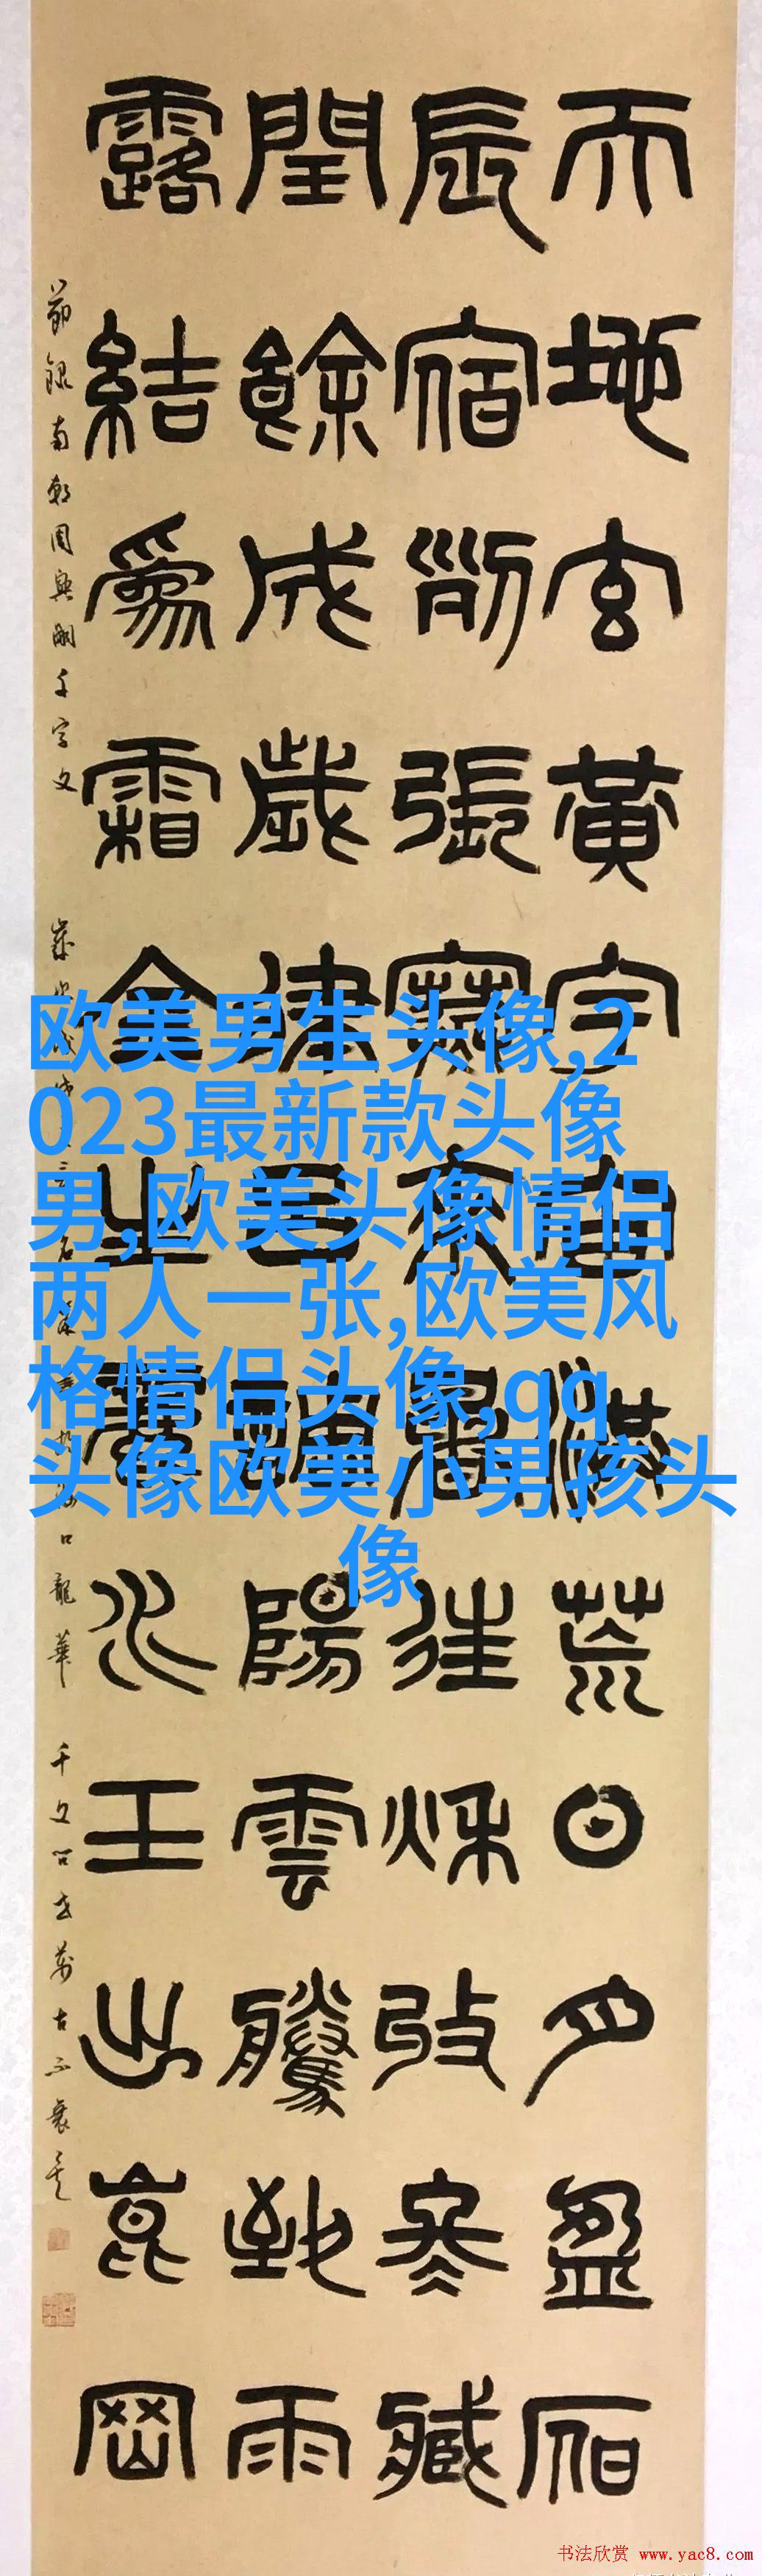 天地玄黃宇宙洪荒日月盈昃
辰宿列張寒來暑往秋收冬藏
閏餘成歲律呂調陽雲騰致雨
露結爲霜金生麗水玉出崑岡
節錄南朝周興嗣千字文
海口龍華
欧美男生头像,2
023最新款头像
男,欧美头像情侣
两人一张,欧美风
格情侣头像,qq
头像欧美小男孩头
像
书法欣赏 www.yac8.com